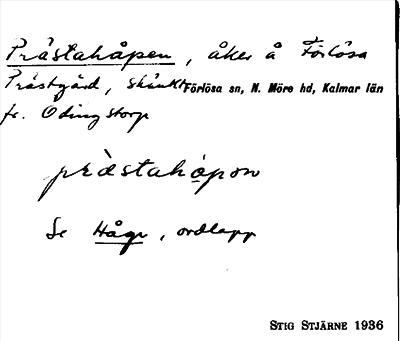 Prästahåpen, åker å Förlösa
Prästgård, skänkt Förlösa sn, N. Möre hd, Kalmar län
fr. Odingstorp
prästahåpon
Se Håge, ordlapp
STIG STJÄRNE 1936